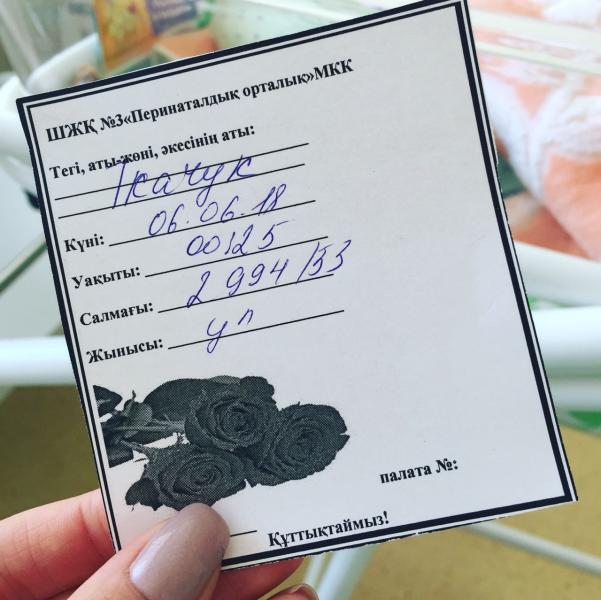 ШЖҚ №3«Перинаталдық орталық»МКК
Тегі, аты-жөні, әкесінің аты:
Ткачук
Күні: 06.06.18
Уақыты: 00125
Салмағы: 2 994/53
Жынысы:
палата №:
Құттықтаймыз!